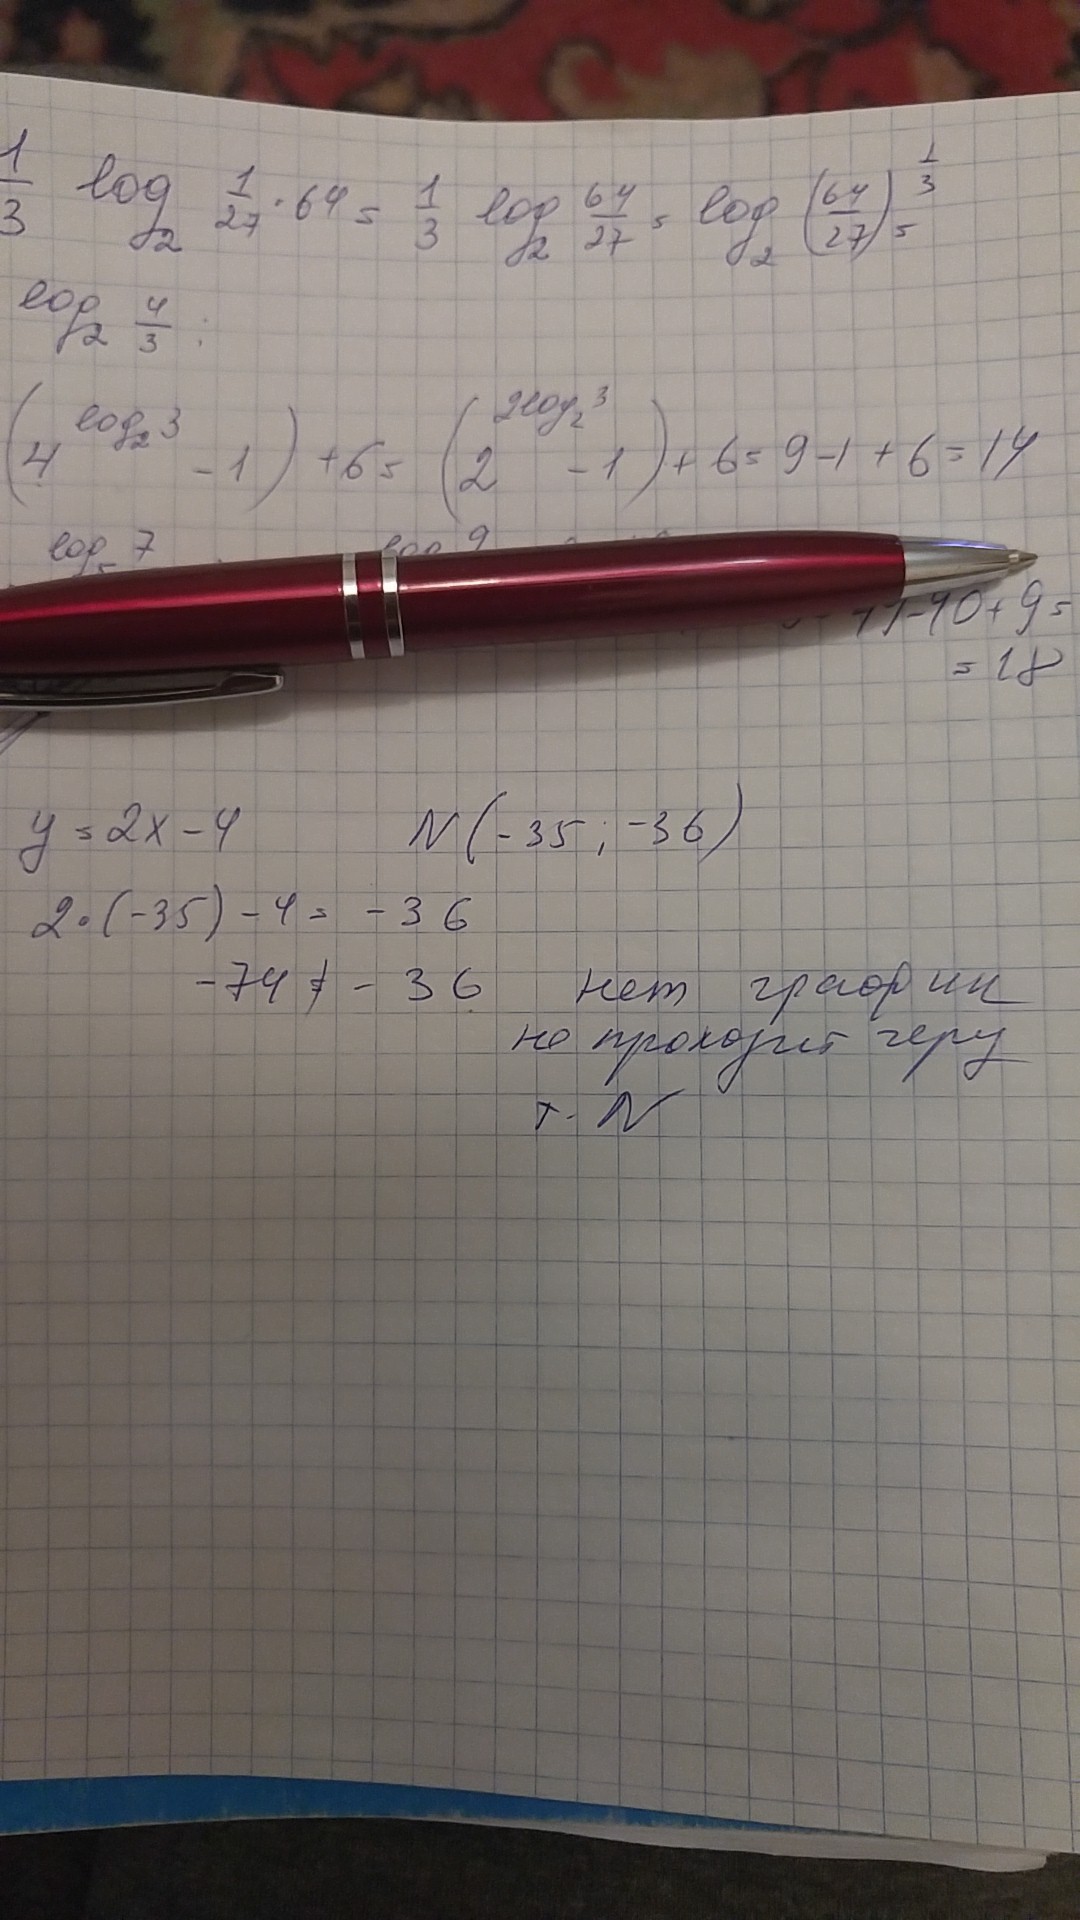 1/3 log₂ 1/27 · 64 = 1/3 log₂ 64/27 = log₂ (64/27)^(1/3) =
log₂ 4/3 ;
(4^(log₂ 3) - 1) + 6 = (2^(2log₂ 3) - 1) + 6 = 9 - 1 + 6 = 14
log₅ 7 log 9
- 90 + 9 =
= 18
y = 2x - 4 N (-35 ; -36)
2 · (-35) - 4 = -36
-74 ≠ - 36 нет график
не проходит через
т. N